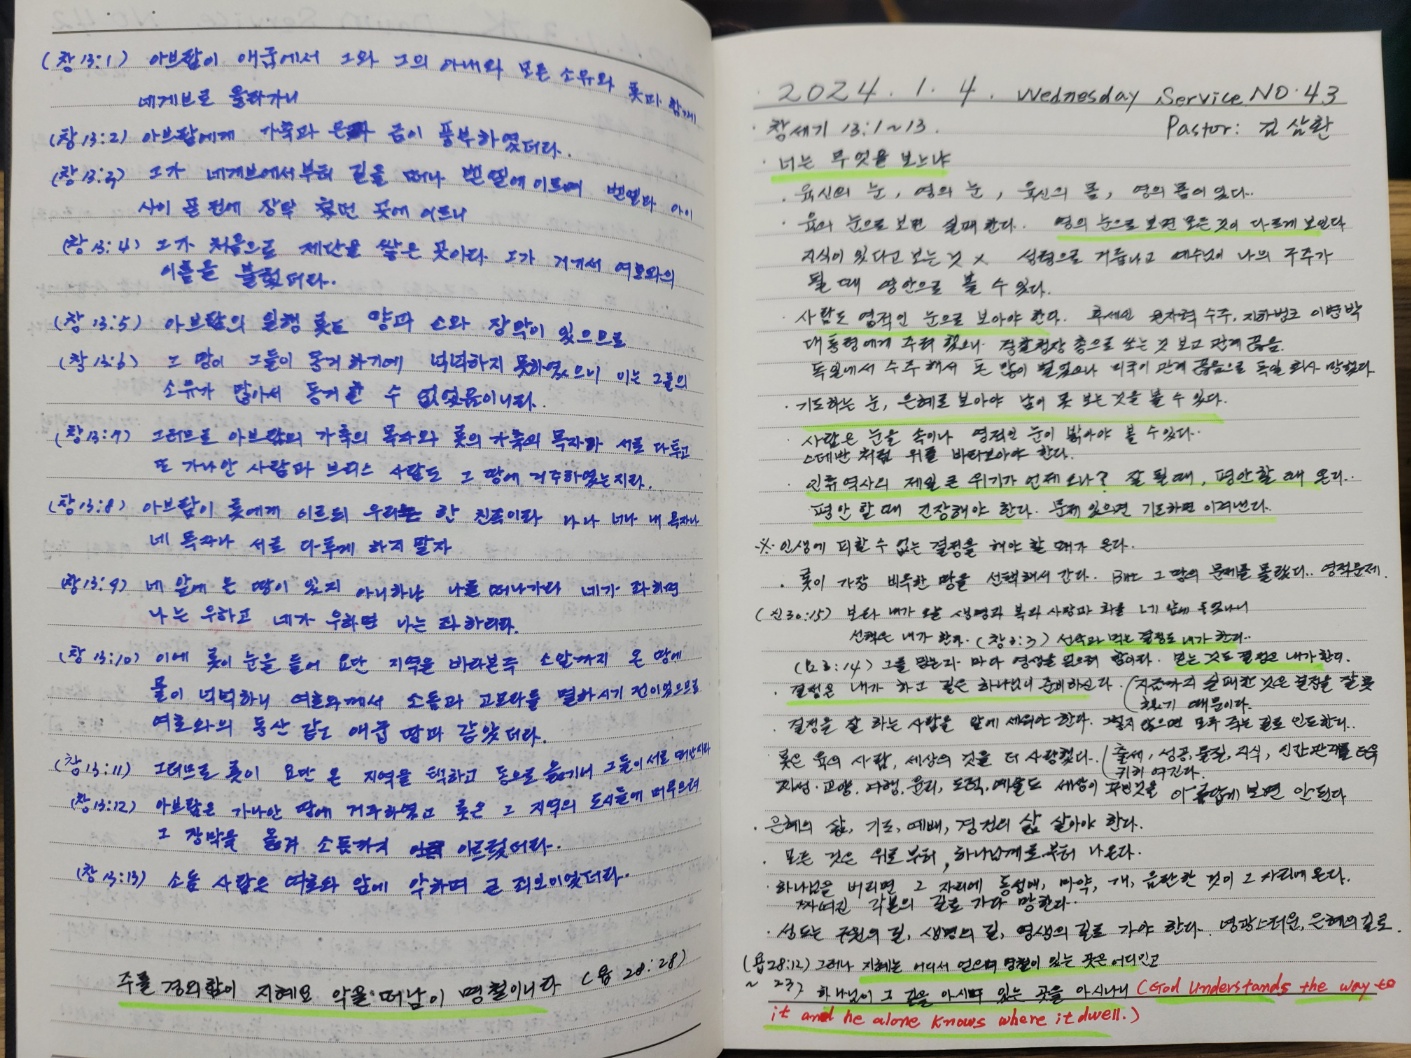 (창 13:1) 아브람이 애굽에서 그와 그의 아내와 모든 소유와 롯과 함께
네게브로 올라가니
(창 13:2) 아브람에게 가축과 은과 금이 풍부하였더라.
(창 13:3) 그가 네게브에서부터 길을 떠나 벧엘에 이르며 벧엘과 아이
사이 곧 전에 장막 쳤던 곳에 이르니
(창 13:4) 그가 처음으로 제단을 쌓은 곳이라 그가 거기서 여호와의
이름을 불렀더라.
(창 13:5) 아브람의 일행 롯도 양과 소와 장막이 있으므로
(창 13:6) 그 땅이 그들이 동거하기에 넉넉하지 못하였으니 이는 그들의
소유가 많아서 동거할 수 없었음이니라.
(창 13:7) 그러므로 아브람의 가축의 목자와 롯의 가축의 목자가 서로 다투고
또 가나안 사람과 브리스 사람도 그 땅에 거주하였는지라.
(창 13:8) 아브람이 롯에게 이르되 우리는 한 친족이라 나나 너나 내 목자나
네 목자나 서로 다투게 하지 말자
(창 13:9) 네 앞에 온 땅이 있지 아니하냐 나를 떠나가라 네가 좌하면
나는 우하고 네가 우하면 나는 좌하리라.
(창 13:10) 이에 롯이 눈을 들어 요단 지역을 바라본즉 소알까지 온 땅에
물이 넉넉하니 여호와께서 소돔과 고모라를 멸하시기 전이었으므로
여호와의 동산 같고 애굽 땅과 같았더라.
(창 13:11) 그러므로 롯이 요단 온 지역을 택하고 동으로 옮기니 그들이 서로 떠난지라
(창 13:12) 아브람은 가나안 땅에 거주하였고 롯은 그 지역의 도시들에 머무르며
그 장막을 옮겨 소돔까지 이르렀더라.
(창 13:13) 소돔 사람은 여호와 앞에 악하며 큰 죄인이었더라.
주를 경외함이 지혜요 악을 떠남이 명철이니라 (욥 28:28)
2024. 1. 4. Wednesday Service NO.43
· 창세기 13:1~13. Pastor: 김삼환
· 너는 무엇을 보느냐
육신의 눈, 영의 눈, 육신의 몸, 영의 몸이 있다.
· 육의 눈으로 보면 실패한다. 영의 눈으로 보면 모든 것이 다르게 보인다
지식이 있다고 보는 것 × 성령으로 거듭나고 예수님이 나의 구주가
될 때 영안으로 볼 수 있다.
· 사람도 영적인 눈으로 보아야 한다. 후세인 원자력 수주, 지하벙커 이명박
대통령에게 주려 했으나 경찰청장 총으로 쏘는 것 보고 관계 끊음.
독일에서 수주해서 돈 많이 벌었으나 미국이 관계 끊음으로 독일 회사 망했다
· 기도하는 눈, 은혜로 보아야 남이 못 보는 것을 볼 수 있다.
· 사람은 눈을 속이나 영적인 눈이 밝아야 볼 수 있다.
스데반처럼 위를 바라보아야 한다.
· 인류역사의 제일 큰 위기가 언제 오나? 잘 될 때, 평안할 때 온다.
평안할 때 긴장해야 한다. 문제 있으면 기도하면 이겨낸다.
※ 인생에 피할 수 없는 결정을 해야 할 때가 온다.
· 롯이 가장 비옥한 땅을 선택해서 간다. But 그 땅의 문제를 몰랐다.. 영적문제.
(신 30:15) 보라 내가 오늘 생명과 복과 사망과 화를 네 앞에 두었나니
선택은 내가 한다. (창 3:3) 선악과 먹는 결정도 내가 한다.
(요 3:14) 그를 믿는 자마다 영생을 얻으려 함이라. 믿는 것도 결정은 내가 한다.
· 결정은 내가 하고 길은 하나님이 준비하신다. (지금까지 실패한 것은 결정을 잘못
했기 때문이다.
· 결정을 잘 하는 사람을 앞에 세워야 한다. 그렇지 않으면 모두 죽는 길로 인도한다.
· 롯은 육의 사람, 세상의 것을 더 사랑했다. (출세, 성공, 물질, 지식, 인간관계를 더욱
귀히 여긴다.
지성·교양, 여행, 윤리, 도덕, 예술도 세상이 꾸민것을 아름답게 보면 안된다
· 은혜의 삶, 기도, 예배, 경건의 삶 살아야 한다.
· 모든 것은 위로부터, 하나님께로부터 나온다.
· 하나님을 버리면 그 자리에 동성애, 마약, 개, 음란한 것이 그 자리에 온다.
찌떠진 각본의 길로 가다 망한다.
· 성도는 구원의 길, 생명의 길, 영생의 길로 가야 한다. 영광스러운, 은혜의 길로.
(욥 28:12) 그러나 지혜는 어디서 얻으며 명철이 있는 곳은 어디인고
~ 23) 하나님이 그 길을 아시며 있는 곳을 아시나니 (God understands the way to
it and he alone knows where it dwell.)